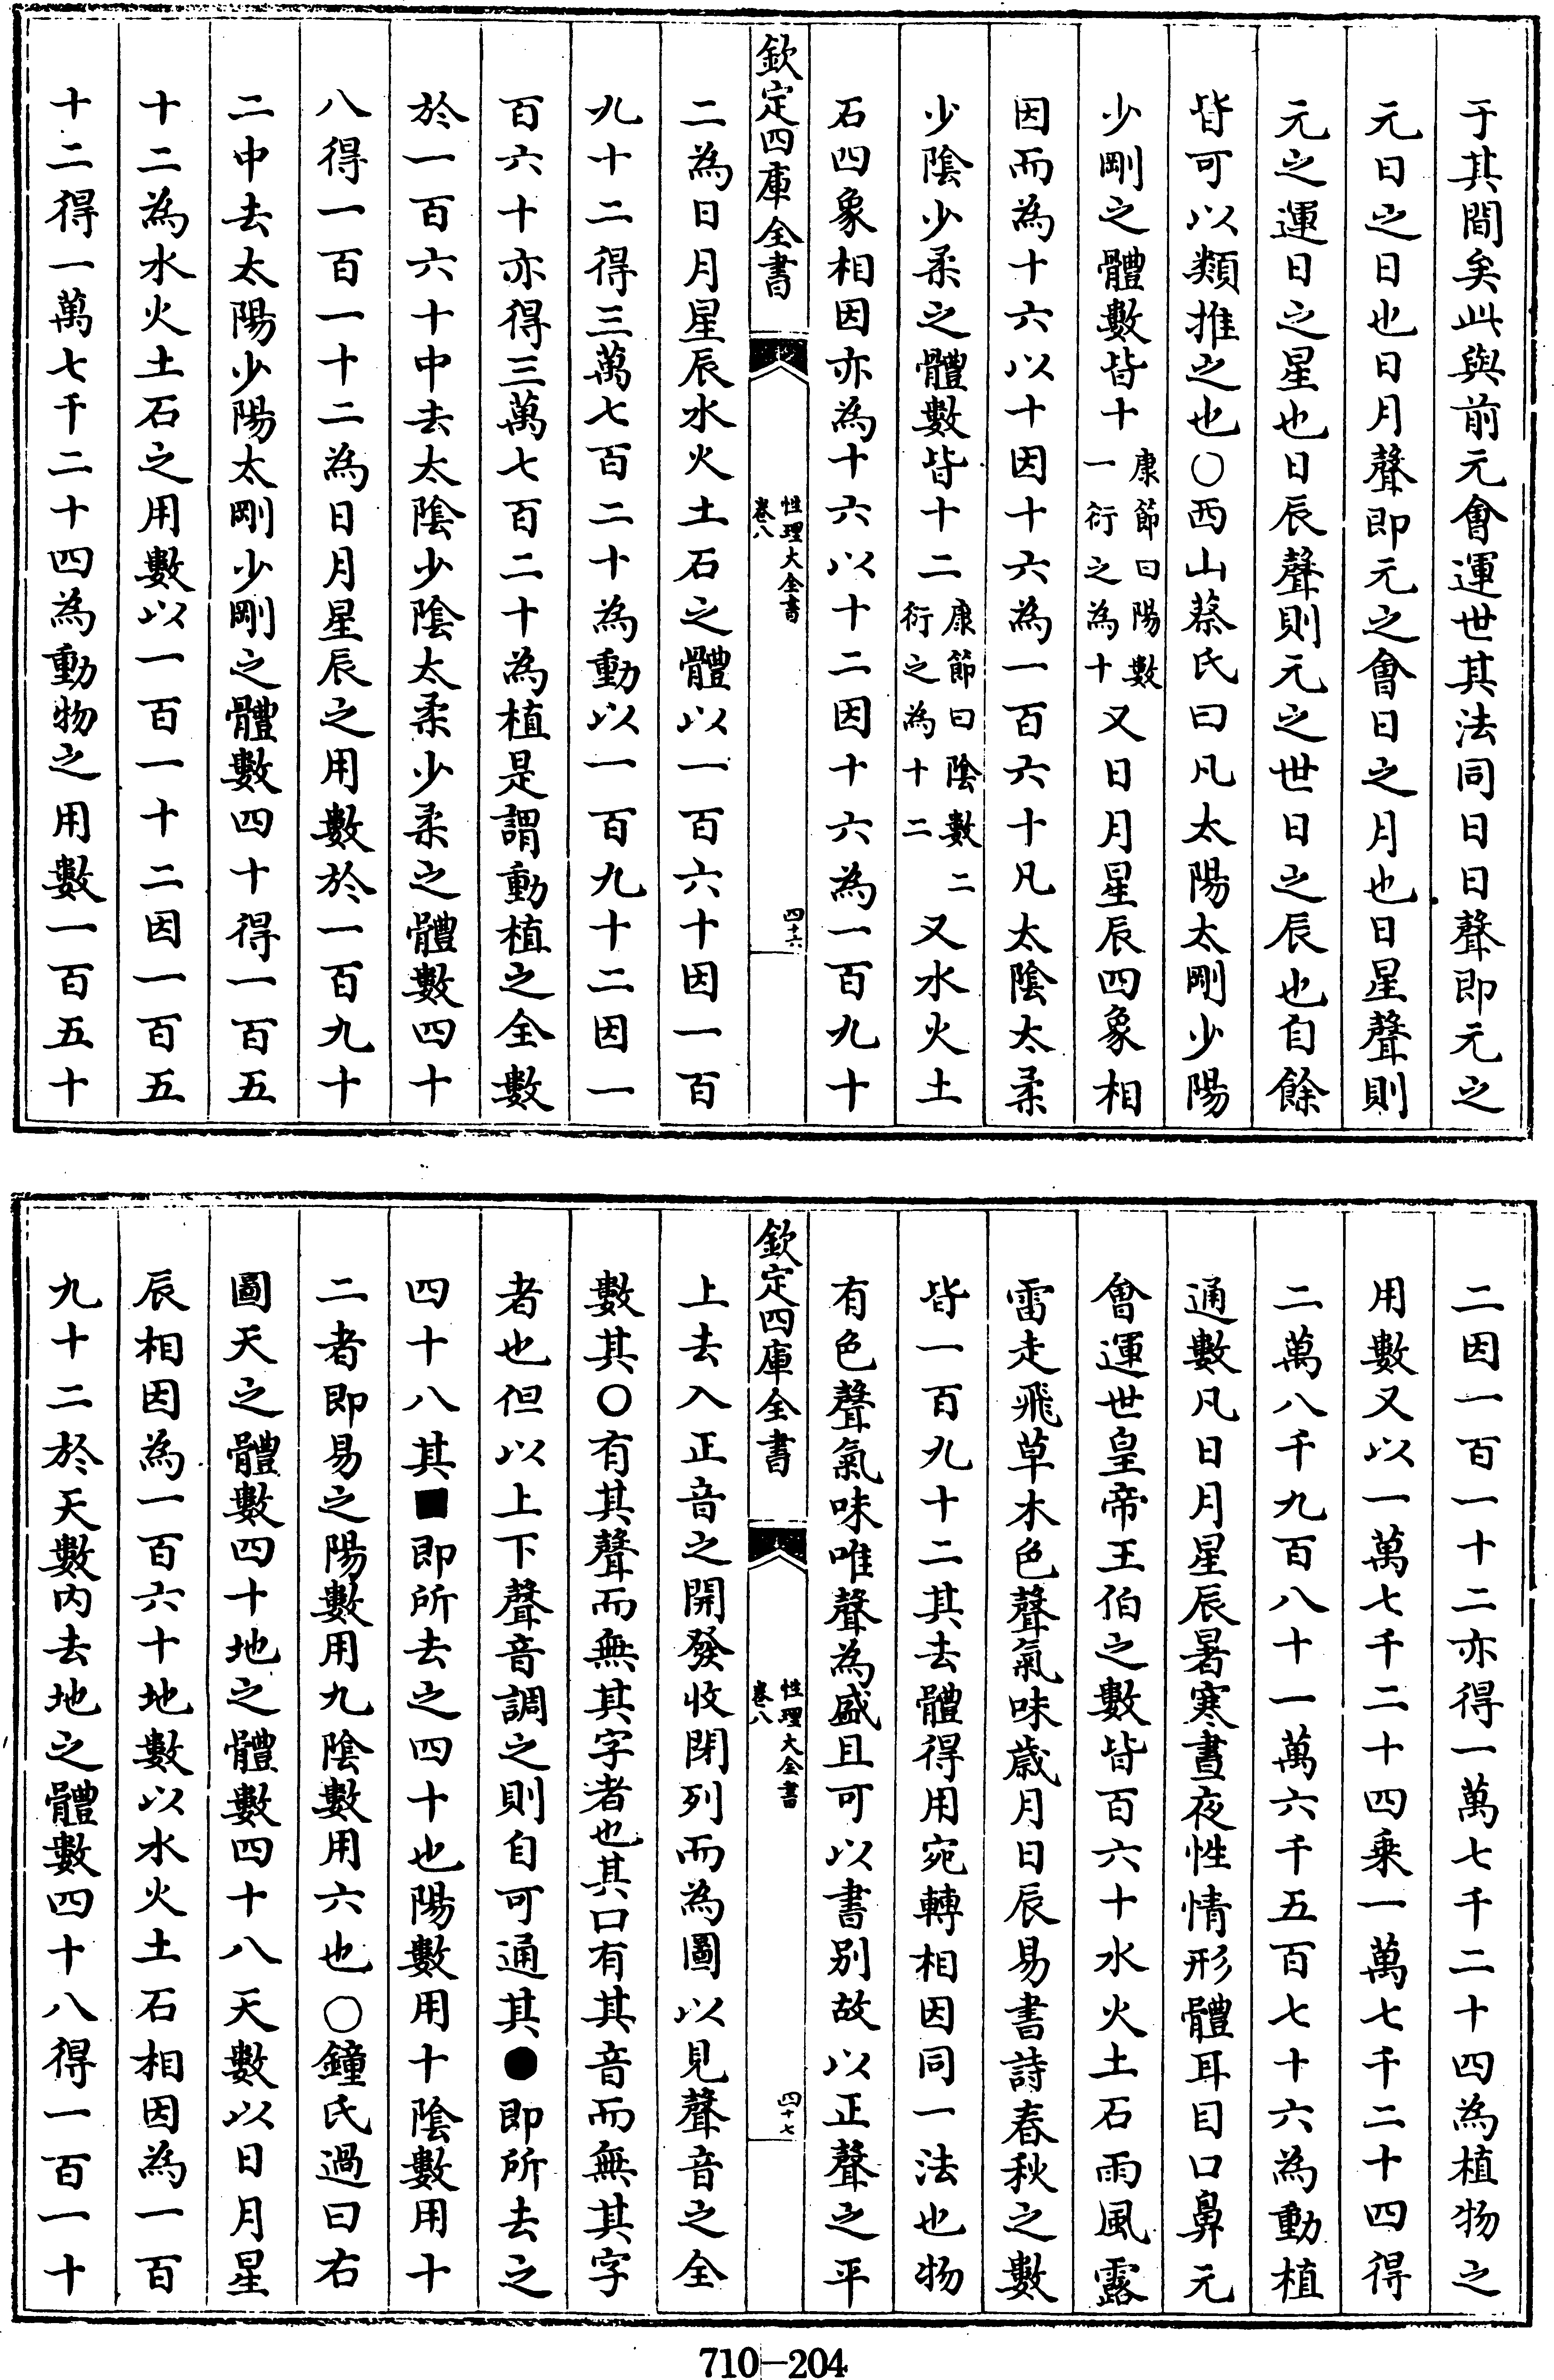 于其間矣此與前元會運世其法同日日聲即元之
元日之日也日月聲即元之會日之月也日星聲則
元之運日之星也日辰聲則元之世日之辰也自餘
皆可以類推之也○西山蔡氏曰凡太陽太剛少陽
少剛之體數皆十康節曰陽數一衍之為十又日月星辰四象相
因而為十六以十因十六為一百六十凡太陰太柔
少陰少柔之體數皆十二康節曰陰數二衍之為十二又水火土
石四象相因亦為十六以十二因十六為一百九十
欽定四庫全書 性理大全書 卷八 四十六
二為日月星辰水火土石之體以一百六十因一百
九十二得三萬七百二十為動以一百九十二因一
百六十亦得三萬七百二十為植是謂動植之全數
於一百六十中去太陰少陰太柔少柔之體數四十
八得一百一十二為日月星辰之用數於一百九十
二中去太陽少陽太剛少剛之體數四十得一百五
十二為水火土石之用數以一百一十二因一百五
十二得一萬七千二十四為動物之用數一百五十
二因一百一十二亦得一萬七千二十四為植物之
用數又以一萬七千二十四乗一萬七千二十四得
二萬八千九百八十一萬六千五百七十六為動植
通數凡日月星辰暑寒晝夜性情形體耳目口鼻元
會運世皇帝王伯之數皆百六十水火土石雨風露
雷走飛草木色聲氣味歲月日辰易書詩春秋之數
皆一百九十二其去體得用宛轉相因同一法也物
有色聲氣味唯聲為盛且可以書別故以正聲之平
欽定四庫全書 性理大全書 卷八 四十七
上去入正音之開發收閉列而為圖以見聲音之全
數其○有其聲而無其字者也其口有其音而無其字
者也但以上下聲音調之則自可通其●即所去之
四十八其■即所去之四十也陽數用十陰數用十
二者即易之陽數用九陰數用六也○鐘氏過曰右
圖天之體數四十地之體數四十八天數以日月星
辰相因為一百六十地數以水火土石相因為一百
九十二於天數內去地之體數四十八得一百一十
710-204